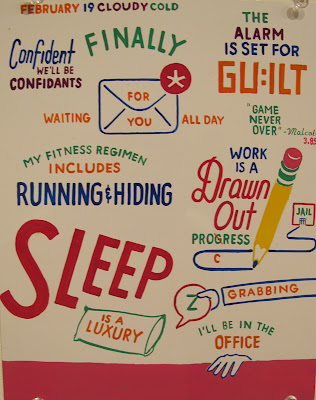 FEBRUARY 19 CLOUDY COLD
Confident
WE'LL BE
CONFIDANTS
FINALLY
THE
ALARM
IS SET FOR
GU:ILT
WAITING
FOR
YOU
ALL DAY
"GAME
NEVER
OVER" -Malcolm
3.85
MY FITNESS REGIMEN
INCLUDES
RUNNING & HIDING
WORK
IS A
Drawn
Out
PROGRESS
C
JAIL
SLEEP
IS A
LUXURY
Z
GRABBING
I'LL BE IN THE
OFFICE